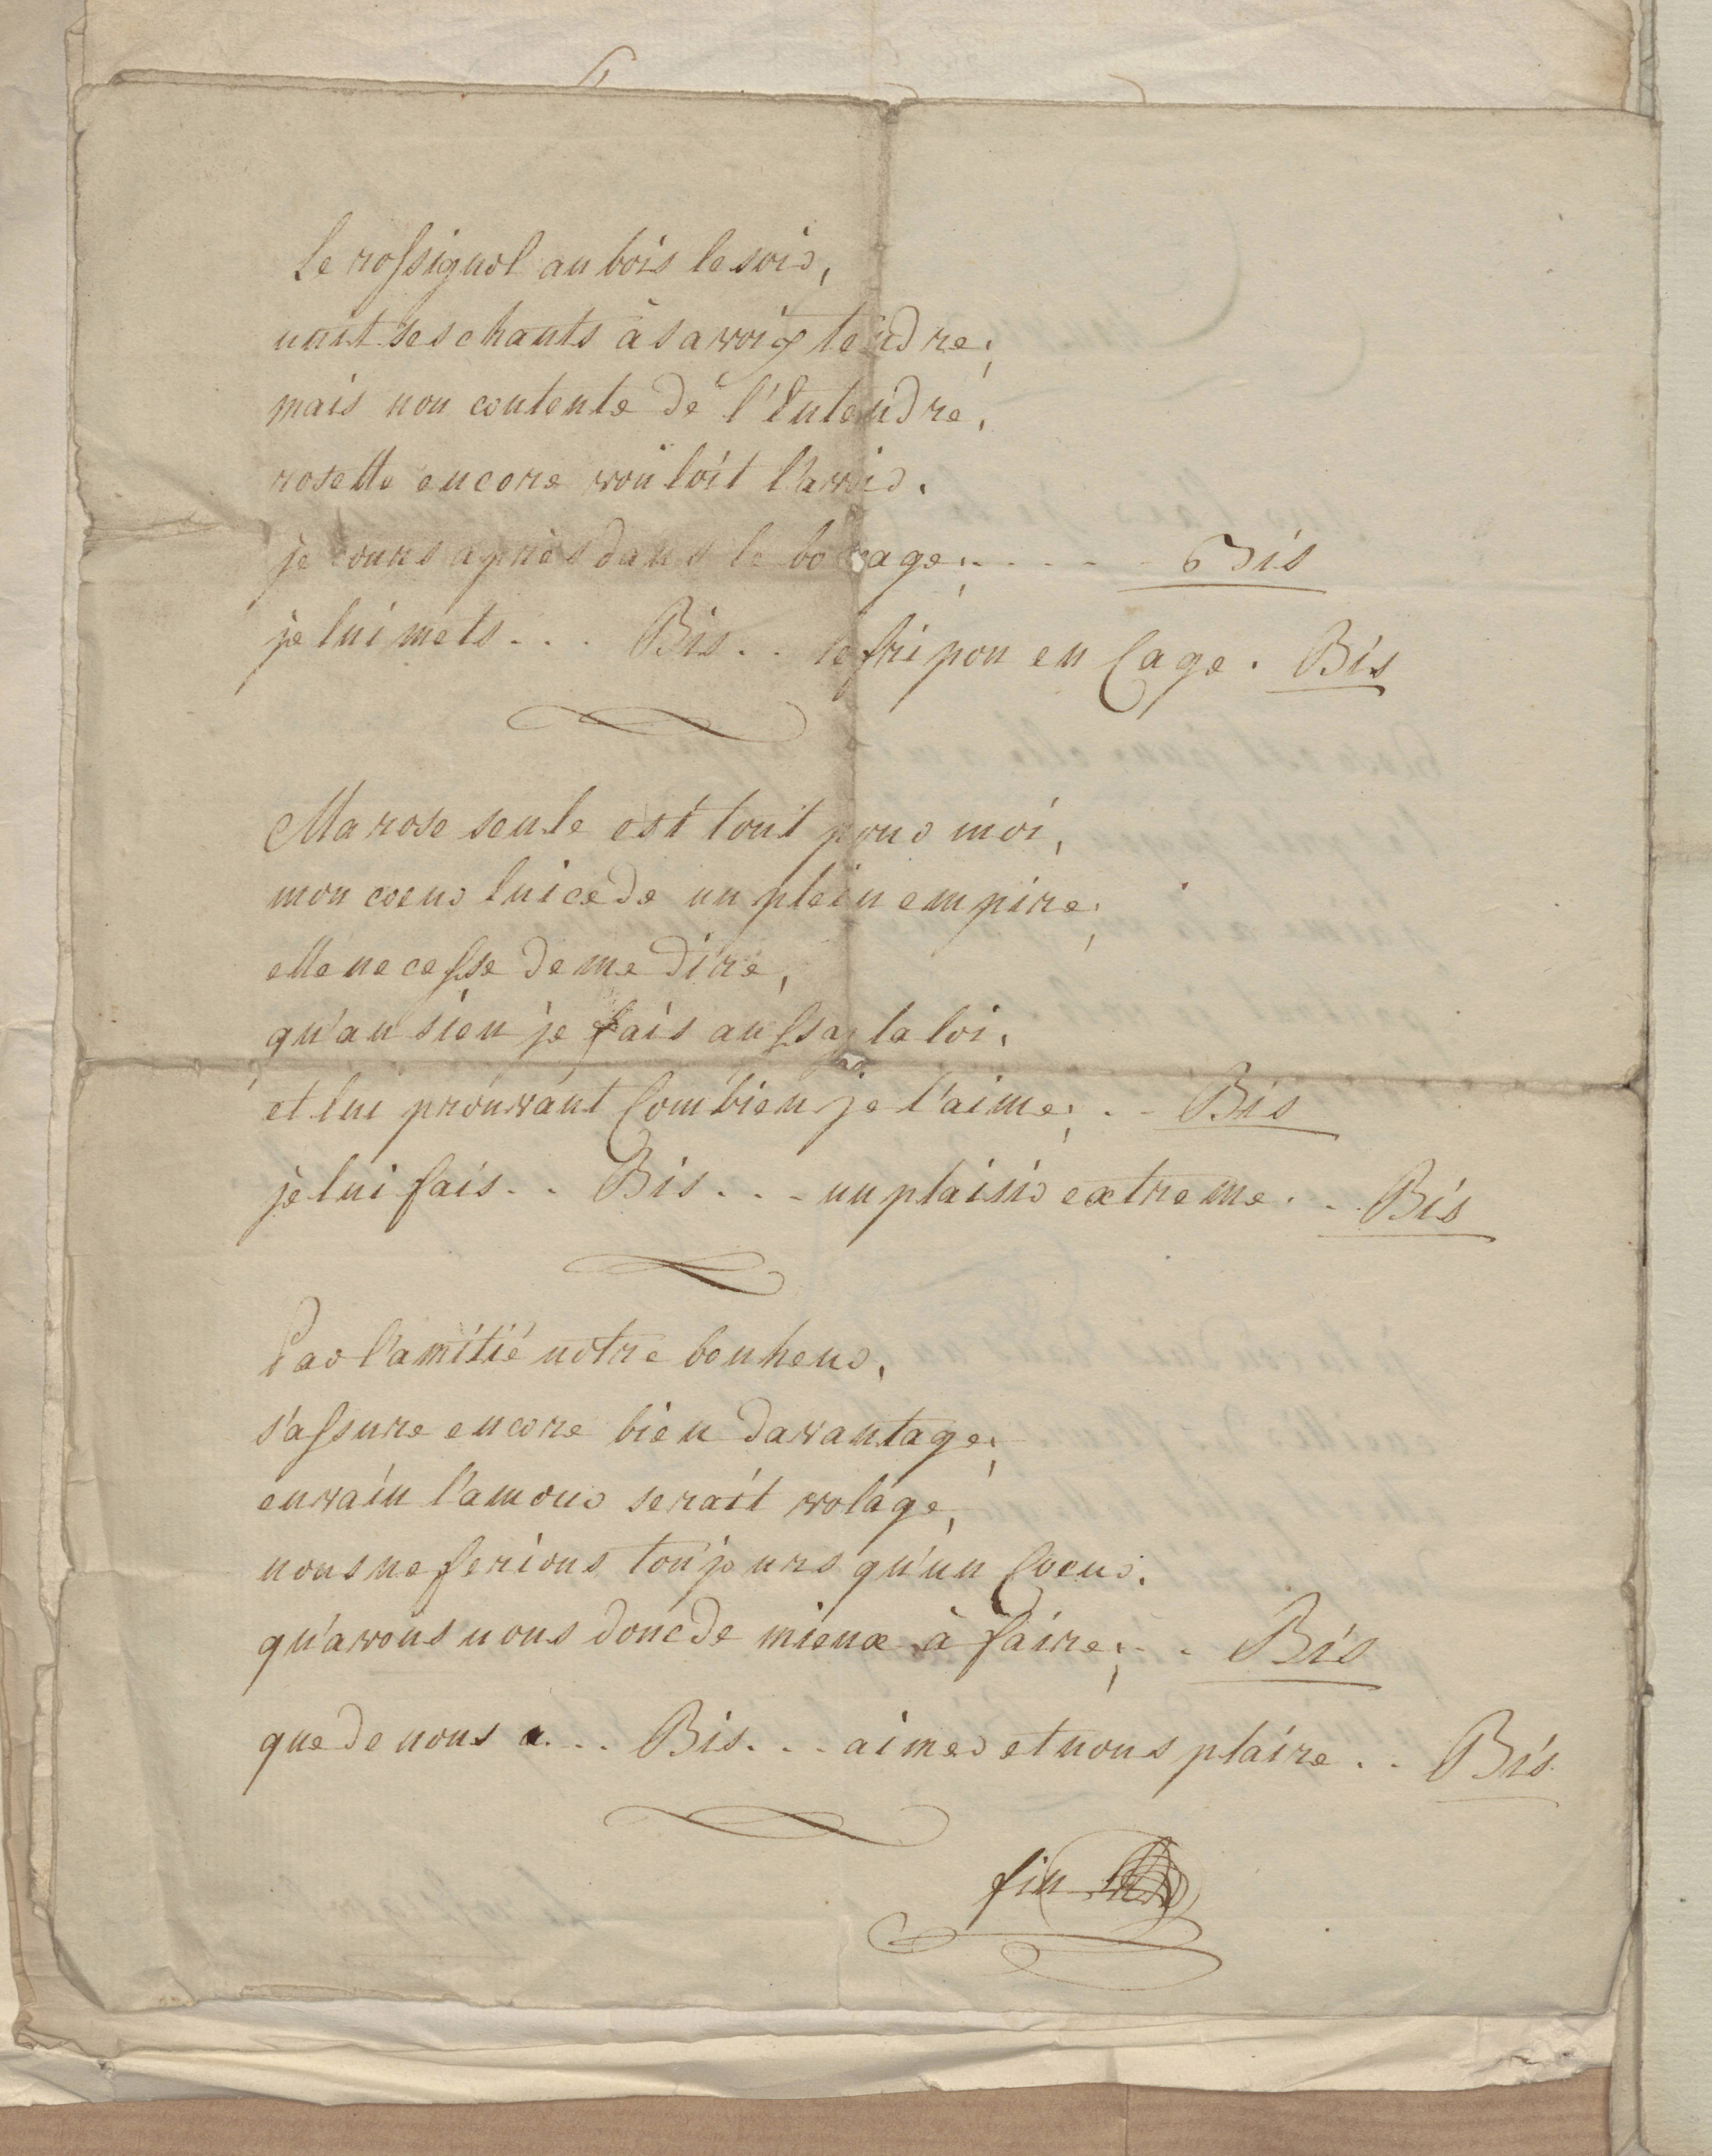 Le rossignol au bois le soir,
unit ses chants à sa voix tendre;
mais non contente de l'Entendre,
rosette encore vouloit l'avoir.
je cours après dans le bocage; . . . . Bis
je lui mets . . . Bis . . le fripon en Cage . Bis
Ma rose seule est tout pour moi,
mon coeur lui cede un plein empire;
elle ne cesse de me dire,
qu'au sien je fais aussay la loi,
et lui prouvant Combien je l'aime; . . Bis
je lui fais . . Bis . . . un plaisir extreme . . Bis
Par l'amitié notre bonheur,
s'assure encore bien davantage;
envain l'amour serait volage,
nous ne ferions toujours qu'un Coeur.
qu'avons nous donc de mieux à faire; . . Bis
que de nous a . . . Bis . . . aimer et nous plaire . . Bis
fin